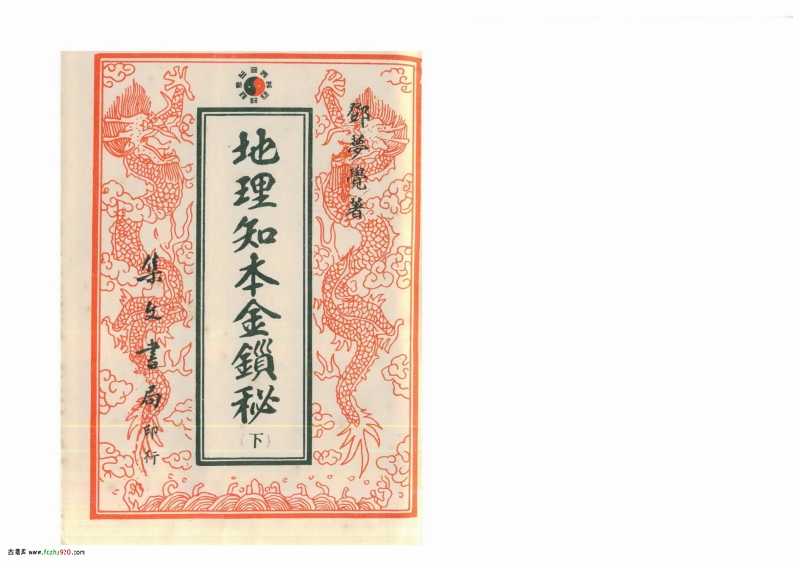 鄧夢覺著
地理知本金鎖秘
（下）
集文書局印行
www.fczhu920.com